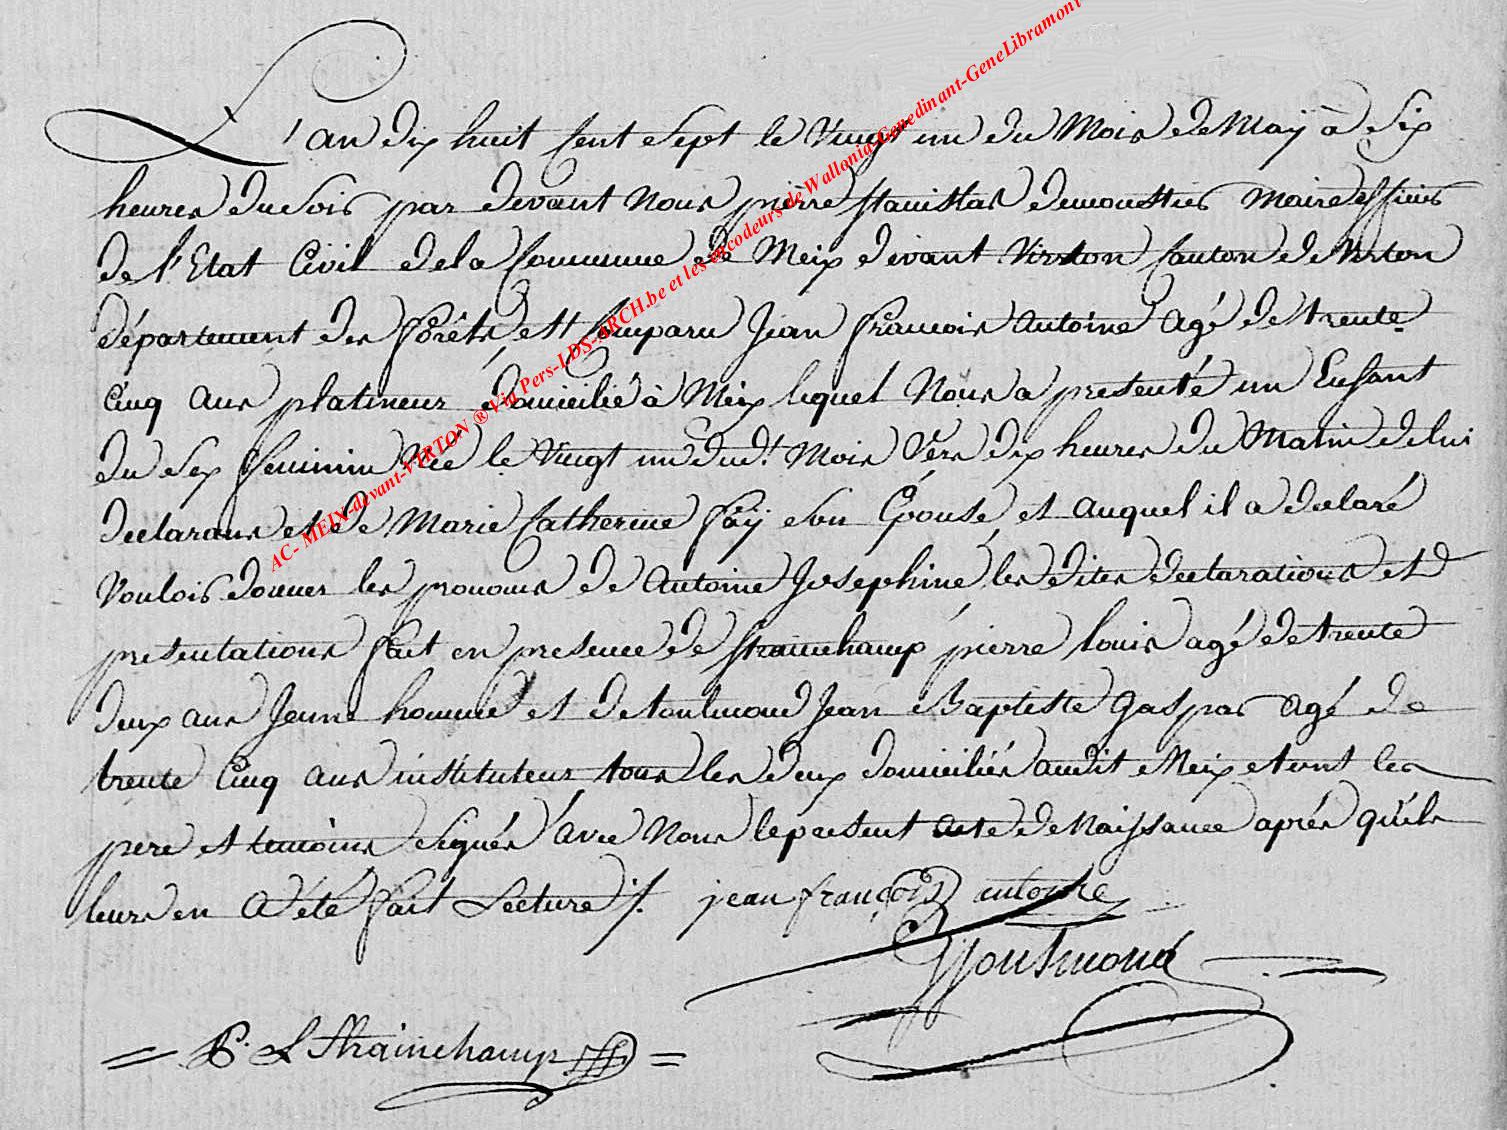 L'an dix huit Cent Sept le Vingt un du Mois de May à Six
heures du Soir par devant Nous pierre stanislas demoustier Maire officier
de l'Etat Civil de la Commune de Meix devant Virton Canton de Virton
département des forêts est Comparu Jean françois antoine agé de trente
Cinq ans platineur domicilié à Meix lequel Nous a presenté un Enfant
du Sex feminin Née le Vingt un dud.t Mois Vers dix heures du Matin de lui
declarans et de Marie Catherine faÿ Son Epouse, et auquel il a declaré
Vouloir donner les prenoms de antoine Josephine les dites declarations et
presentations fait en presence de strainchamp pierre louis agé de trente
deux ans Jeune homme et de toulmond Jean Baptiste Gaspar agé de
trente Cinq ans instituteur tous les deux domiciliés audit Meix et ont les
pere et temoins Signés avec Nous le present acte de Naissance après qu'ils
leurs en a été fait Lecture ./.
jean françois antoine
Toulmond
P. L Strainchamp
AC- MEIX-devant-VIRTON ® Via Pers-LDS-ARCH.be et les encodeurs de Wallonia-Genedinant-GeneLibramont